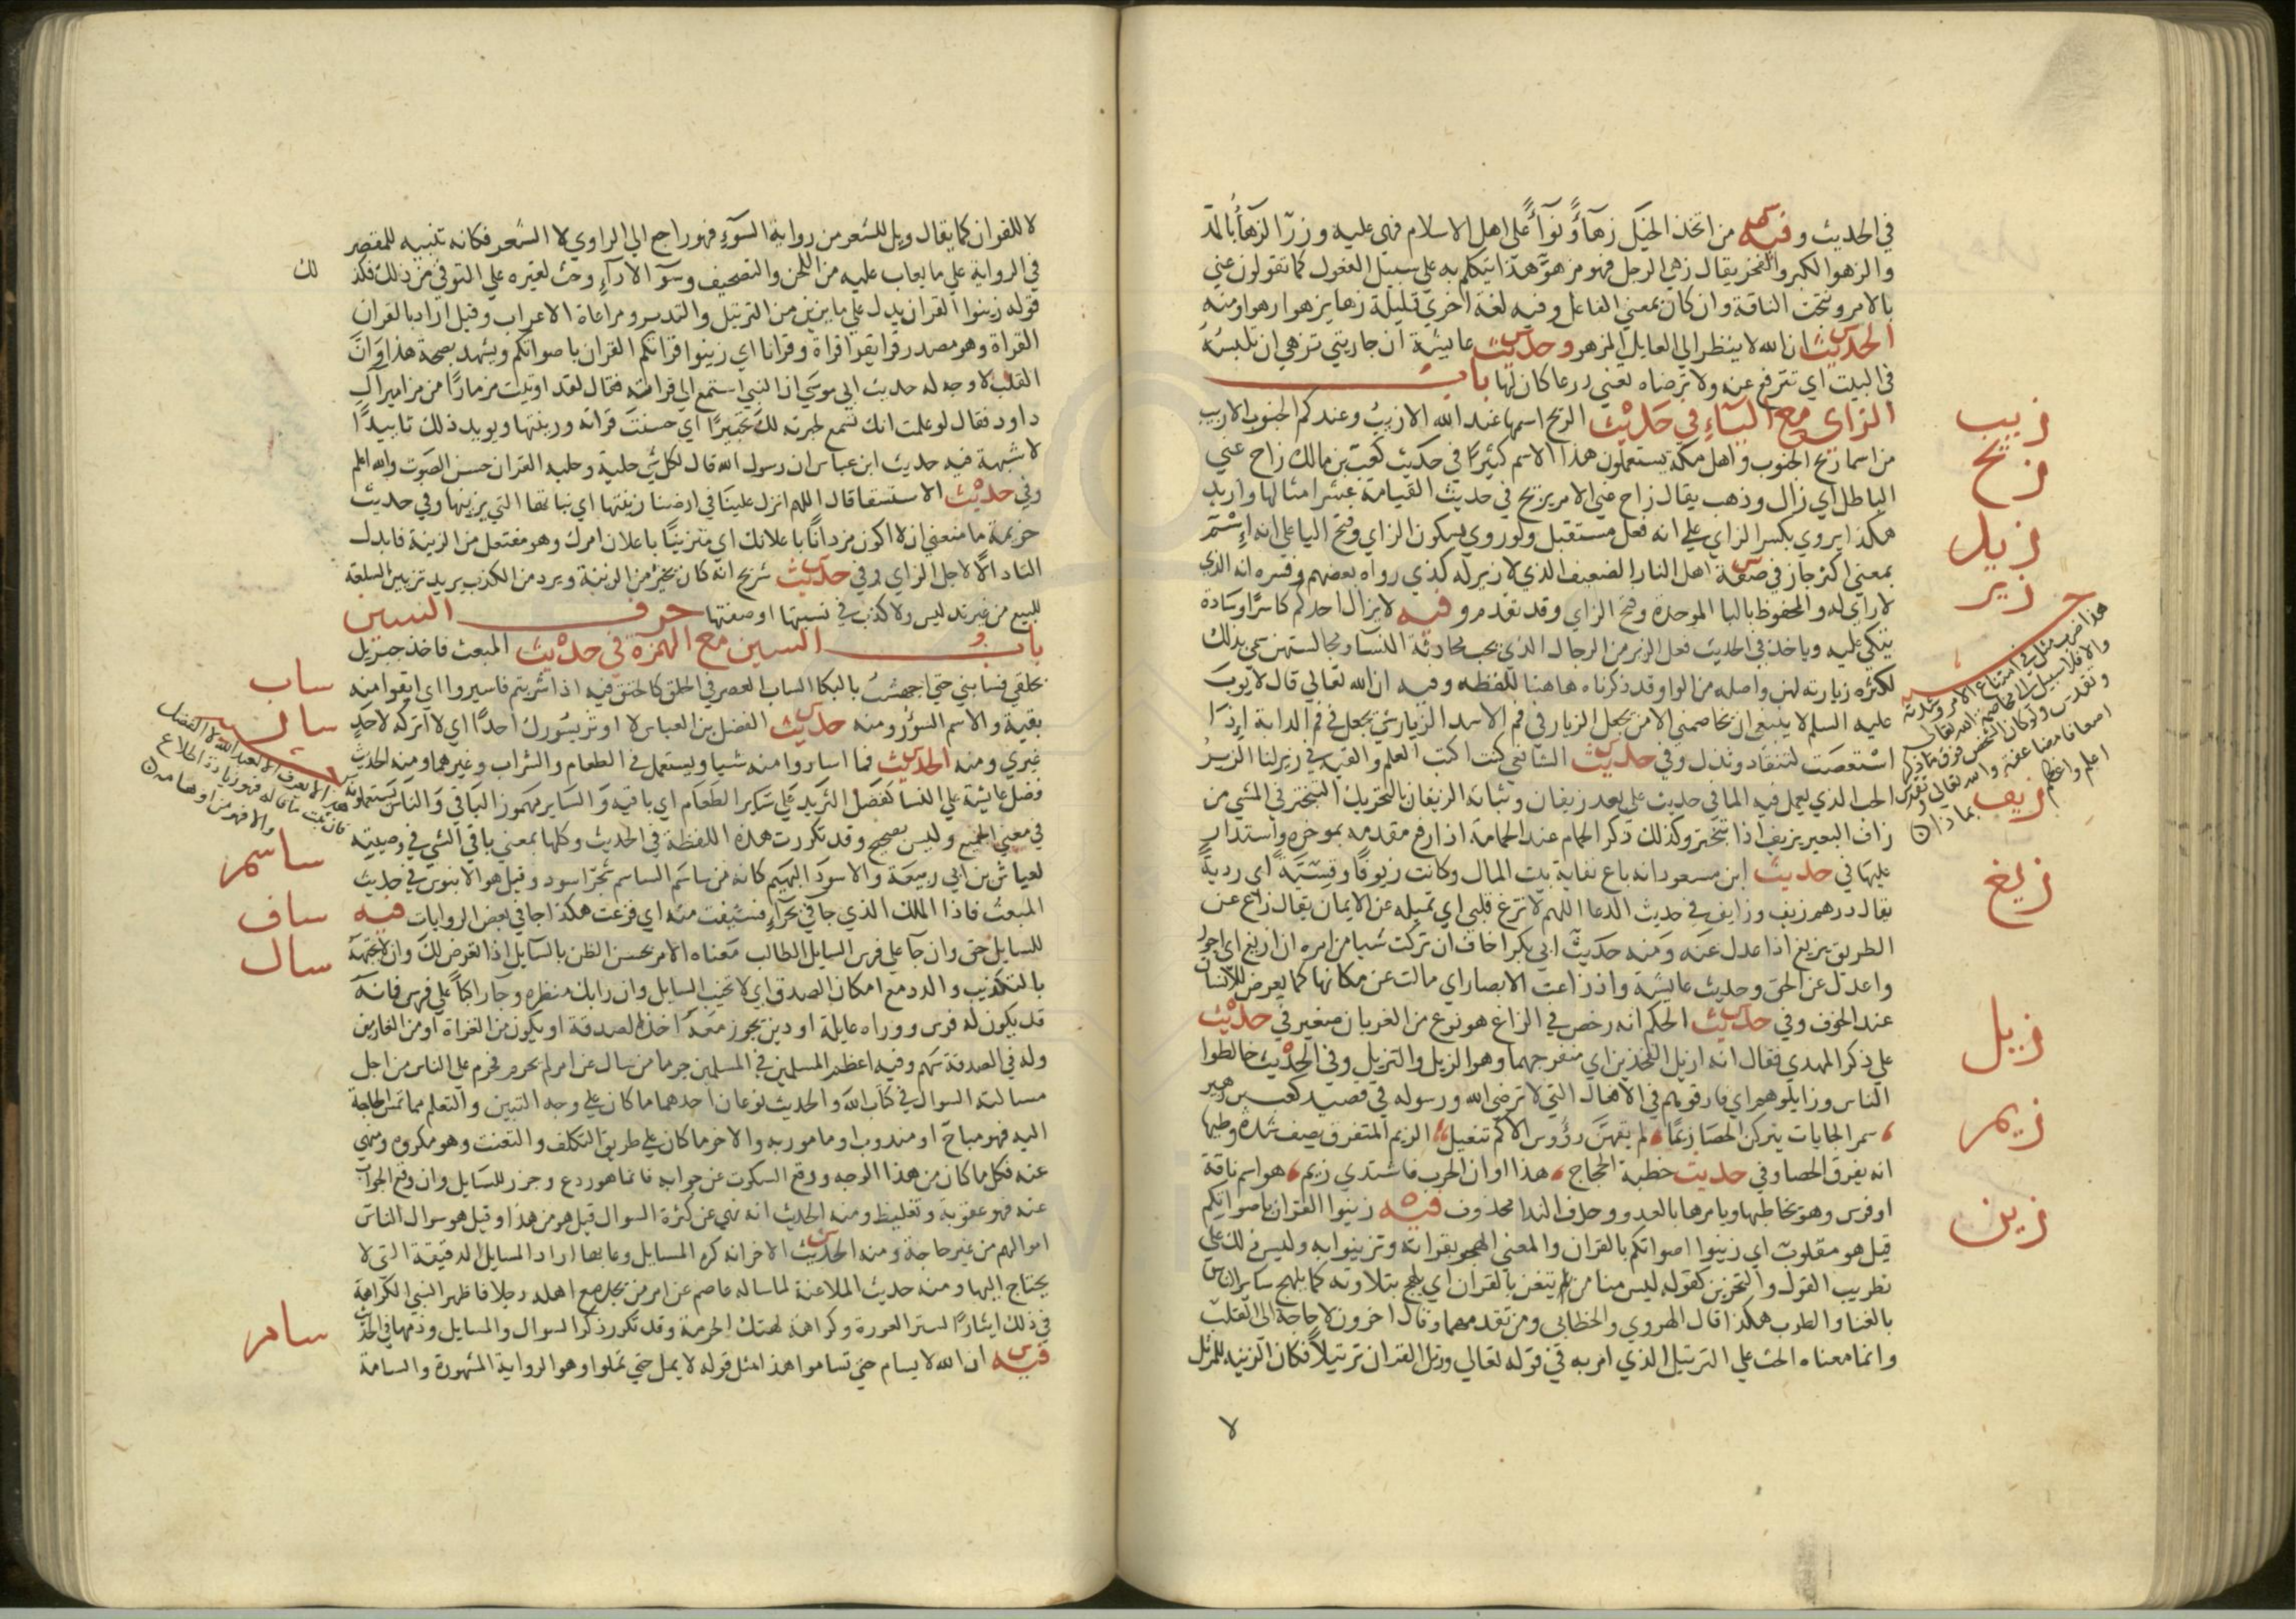 في الحديث وفيه من اتخذ الخيل زهآءً ونوآءً على اهل الاسلام فهى عليه وزر الزهآء بالمد
والزهو الكبر والفخر يقال زهي الرجل فهو مزهو هكذا يتكلم به على سبيل المفعول كما تقولون عني
بالامر ونتجت الناقة وان كان بمعني الفاعل وفيه لغة اخري قليلة زها يزهو زهوا ومنه
الحديث ان الله لا ينظر الي العايل المزهو وحديث عايشة ان جاريتي تزهي ان تلبسه
في البيت اي تترفع عنه ولا ترضاه تعني درعا كان لها باب
الزاي مع اليآء في حديث الريح اسمها عند الله الازيب وعندكم الجنوب الازيب
من اسما ريح الجنوب واهل مكة يستعملون هذا الاسم كثيرًا في حديث كعب بن مالك زاح عني
الباطل اي زال وذهب يقال زاح عني الامر يزيح في حديث القيامة عشر امثالها وازيد
هكذا يروي بكسر الزاي علي انه فعل مستقبل ولو روي بسكون الزاي وفتح اليا على انه اسم
بمعني اكثر جاز في صفة اهل النار الضعيف الذي لا زير له كذي رواه بعضهم وفسره انه الذي
لا راي له والمحفوظ بالبا الموحدة وفتح الزاي وقد تقدم وفيه لا يزال احدكم كاسرًا وسادة
يتكي عليه وياخذ في الحديث فعل الزير من الرجال الذي يحب محادثة النسا ومجالستهن سمي بذلك
لكثره زيارته لهن واصله من الواو وقد ذكرناه هاهنا للفظه وفيه ان الله تعالي قال لايوب
عليه السلم لا ينبغي ان يخاصمني الا من يجعل الزيار في فم الاسد الزيار شي يجعل في فم الدابة اذا
استعصت لتنقاد وتذل وفي حديث الشافعي كنت اكتب العلم والقيه في زير لنا الزير
الحب الذي يعمل فيه الما في حديث علي بعد زيفان وثباته الزيفان بالتحريك التبختر في المشي من
زاف البعير يزيف اذا تبختر وكذلك ذكر الحمام عند الحمامة اذا رفع مقدمه بموخره واستدار
عليها في حديث ابن مسعود انه باع نفاية بيت المال وكانت زيوفًا وقسيّة اي ردية
يقال درهم زيف وزايف في حديث الدعا اللهم لا تزغ قلبي اي تميله عن الايمان يقال زاغ عن
الطريق يزيغ اذا عدل عنه ومنه حديث ابي بكر اخاف ان تركت شيا من امره ان ازيغ اي اجور
واعدل عن الحق وحديث عايشة واذ زاغت الابصار اي مالت عن مكانها كما يعرض للانسان
عند الخوف وفي حديث الحكم انه رخص في الزاغ هو نوع من الغربان صغير في حديث
علي ذكر المهدي فقال انه ازيل الفخذين اي منفرجهما وهو الزيل والتزيل وفي الحديث خالطوا
الناس وزايلوهم اي فارقوهم في الافعال التي لا ترضي الله ورسوله في قصيد كعب بن زهير
سمر العجايات يتركن الحصا زيمًا لم يقهن رؤوس الاكم تنعيل الزيم المتفرق يصف شدة وطيها
انه يفرق الحصا وفي حديث خطبة الحجاج هذا اوان الحرب فاشتدي زيم هو اسم ناقة
او فرس وهو يخاطبها ويامرها بالعدو وحرف الندا محذوف فيه زينوا القران باصواتكم
قيل هو مقلوب اي زينوا اصواتكم بالقران والمعني الهجو بقراته وتزينوا به وليس ذلك علي
تطريب القول والتحزين كقوله ليس منا من لم يتغن بالقران اي يلهج بتلاوته كما يلهج ساير الناس
بالغنا والطرب هكذا قال الهروي والخطابي ومن تقدمهما وقال اخرون لا حاجة الى القلب
وانما معناه الحث علي الترتيل الذي امر به في قوله تعالي ورتل القران ترتيلاً فكان الزينة للمرتل
لا
زيب
زيح
زيد
زير
هذا ضرب مثل في امتناع الامر وشدته
والا فلا سبيل الى مخاصمة الله تعالى
زيف
زيغ
زيل
زيم
زين
لا للقران كما يقال ويل للشعر من رواية السوء فهو راجع الي الراوي لا الشعر فكانه تنبيه للمقصر
في الرواية علي ما يعاب عليه من اللحن والتصحيف وسوء الادآء وحث لغيره علي التوقي من ذلك فكذلك
قوله زينوا القران يدل علي ما يزين من الترتيل والتدبر ومراعاة الاعراب وقيل اراد بالقران
القراة وهو مصدر قرا يقرا قراة وقرانا اي زينوا قراتكم القران باصواتكم ويشهد بصحة هذا وان
القلب لا وجه له حديث ابي موسي ان النبي استمع الي قراته فقال لقد اوتيت مزمارًا من مزامير آل
داود فقال لو علمت انك تسمع لحبرته لك تحبيرًا اي حسنت قراته وزينتها ويويد ذلك تاييدًا
لا شبهة فيه حديث ابن عباس ان رسول الله قال لكل شي حلية وحلية القران حسن الصوت والله اعلم
وفي حديث الاستسقا قال اللهم انزل علينا في ارضنا زينتها اي نباتها التي يزينها وفي حديث
خزيمة ما منعني ان لا اكون مزدانًا باعلانك اي متزينًا باعلان امرك وهو مفتعل من الزينة فابدل
التاء دالًا لاجل الزاي وفي حديث شريح انه كان يجيز من الزينة ويرد من الكذب يريد تزيين السلعة
للبيع من غير تدليس ولا كذب في نسبتها او صفتها حرف السين
باب السين مع الهمزة في حديث المبعث فاخذ جبريل
بحلقي فسابني حتي اجهشت بالبكا الساب العصر في الحلق كالخنق فيه اذا شربتم فاسيروا اي ابقوا منه
بقية والاسم السؤر ومنه حديث الفضل بن العباس لا اوثر بسورك احدًا اي لا اتركه لاحد
غيري ومنه الحديث فما اساروا منه شيا ويستعمل في الطعام والشراب وغيرهما ومنه الحديث
فضل عايشة علي النسا كفضل الثريد علي ساير الطعام اي باقيه والساير مهموز الباقي والناس يستعملونه
في معني الجميع وليس بصحيح وقد تكررت هذه اللفظة في الحديث وكلها بمعني باقي الشي في وصيته
لعياش بن ابي ربيعة والاسود البهيم كانه من ساسم الساسم شجر اسود وقيل هو الابنوس في حديث
المبعث فاذا الملك الذي جاني بحرآء فسئفت منه اي فزعت هكذا جا في بعض الروايات فيه
للسايل حق وان جآ علي فرس السايل الطالب معناه الامر بحسن الظن بالسايل اذا تعرض لك وان لا تجبهه
بالتكذيب والرد مع امكان الصدق اي لا تخيب السايل وان رابك منظره وجآ راكبًا علي فرس فانه
قد يكون له فرس ووراه عايلة او دين يجوز معه اخذ الصدقة او يكون من الغزاة او من الغارمين
وله في الصدقة سهم وفيه اعظم المسلمين في المسلمين جرما من سال عن امر لم يحرم فحرم علي الناس من اجل
مسالته السوال في كتاب الله والحديث نوعان احدهما ما كان علي وجه التبيين والتعلم مما تمس الحاجة
اليه فهو مباح او مندوب او مامور به والاخر ما كان علي طريق التكلف والتعنت وهو مكروه ومنهي
عنه فكل ما كان من هذا الوجه ووقع السكوت عن جوابه فانما هو ردع وجزر للسايل وان وقع الجواب
عنه فهو عقوبة وتغليظ ومنه الحديث انه نهي عن كثرة السوال قيل هو من هذا وقيل هو سوال الناس
اموالهم من غير حاجة ومنه الحديث الاخر انه كره المسايل وعابها اراد المسايل الدقيقة التي لا
يحتاج اليها ومنه حديث الملاعنة لما ساله عاصم عن امر من يجد مع اهله رجلا فاظهر النبي الكراهة
في ذلك ايثارًا لستر العورة وكراهة لهتك الحرمة وقد تكرر ذكر السوال والمسايل وذمها في الحديث
فيه ان الله لا يسام حتي تساموا هذا مثل قوله لا يمل حتي تملوا وهو الرواية المشهورة والسامة
ساب
سار
ساسم
ساف
سال
سام